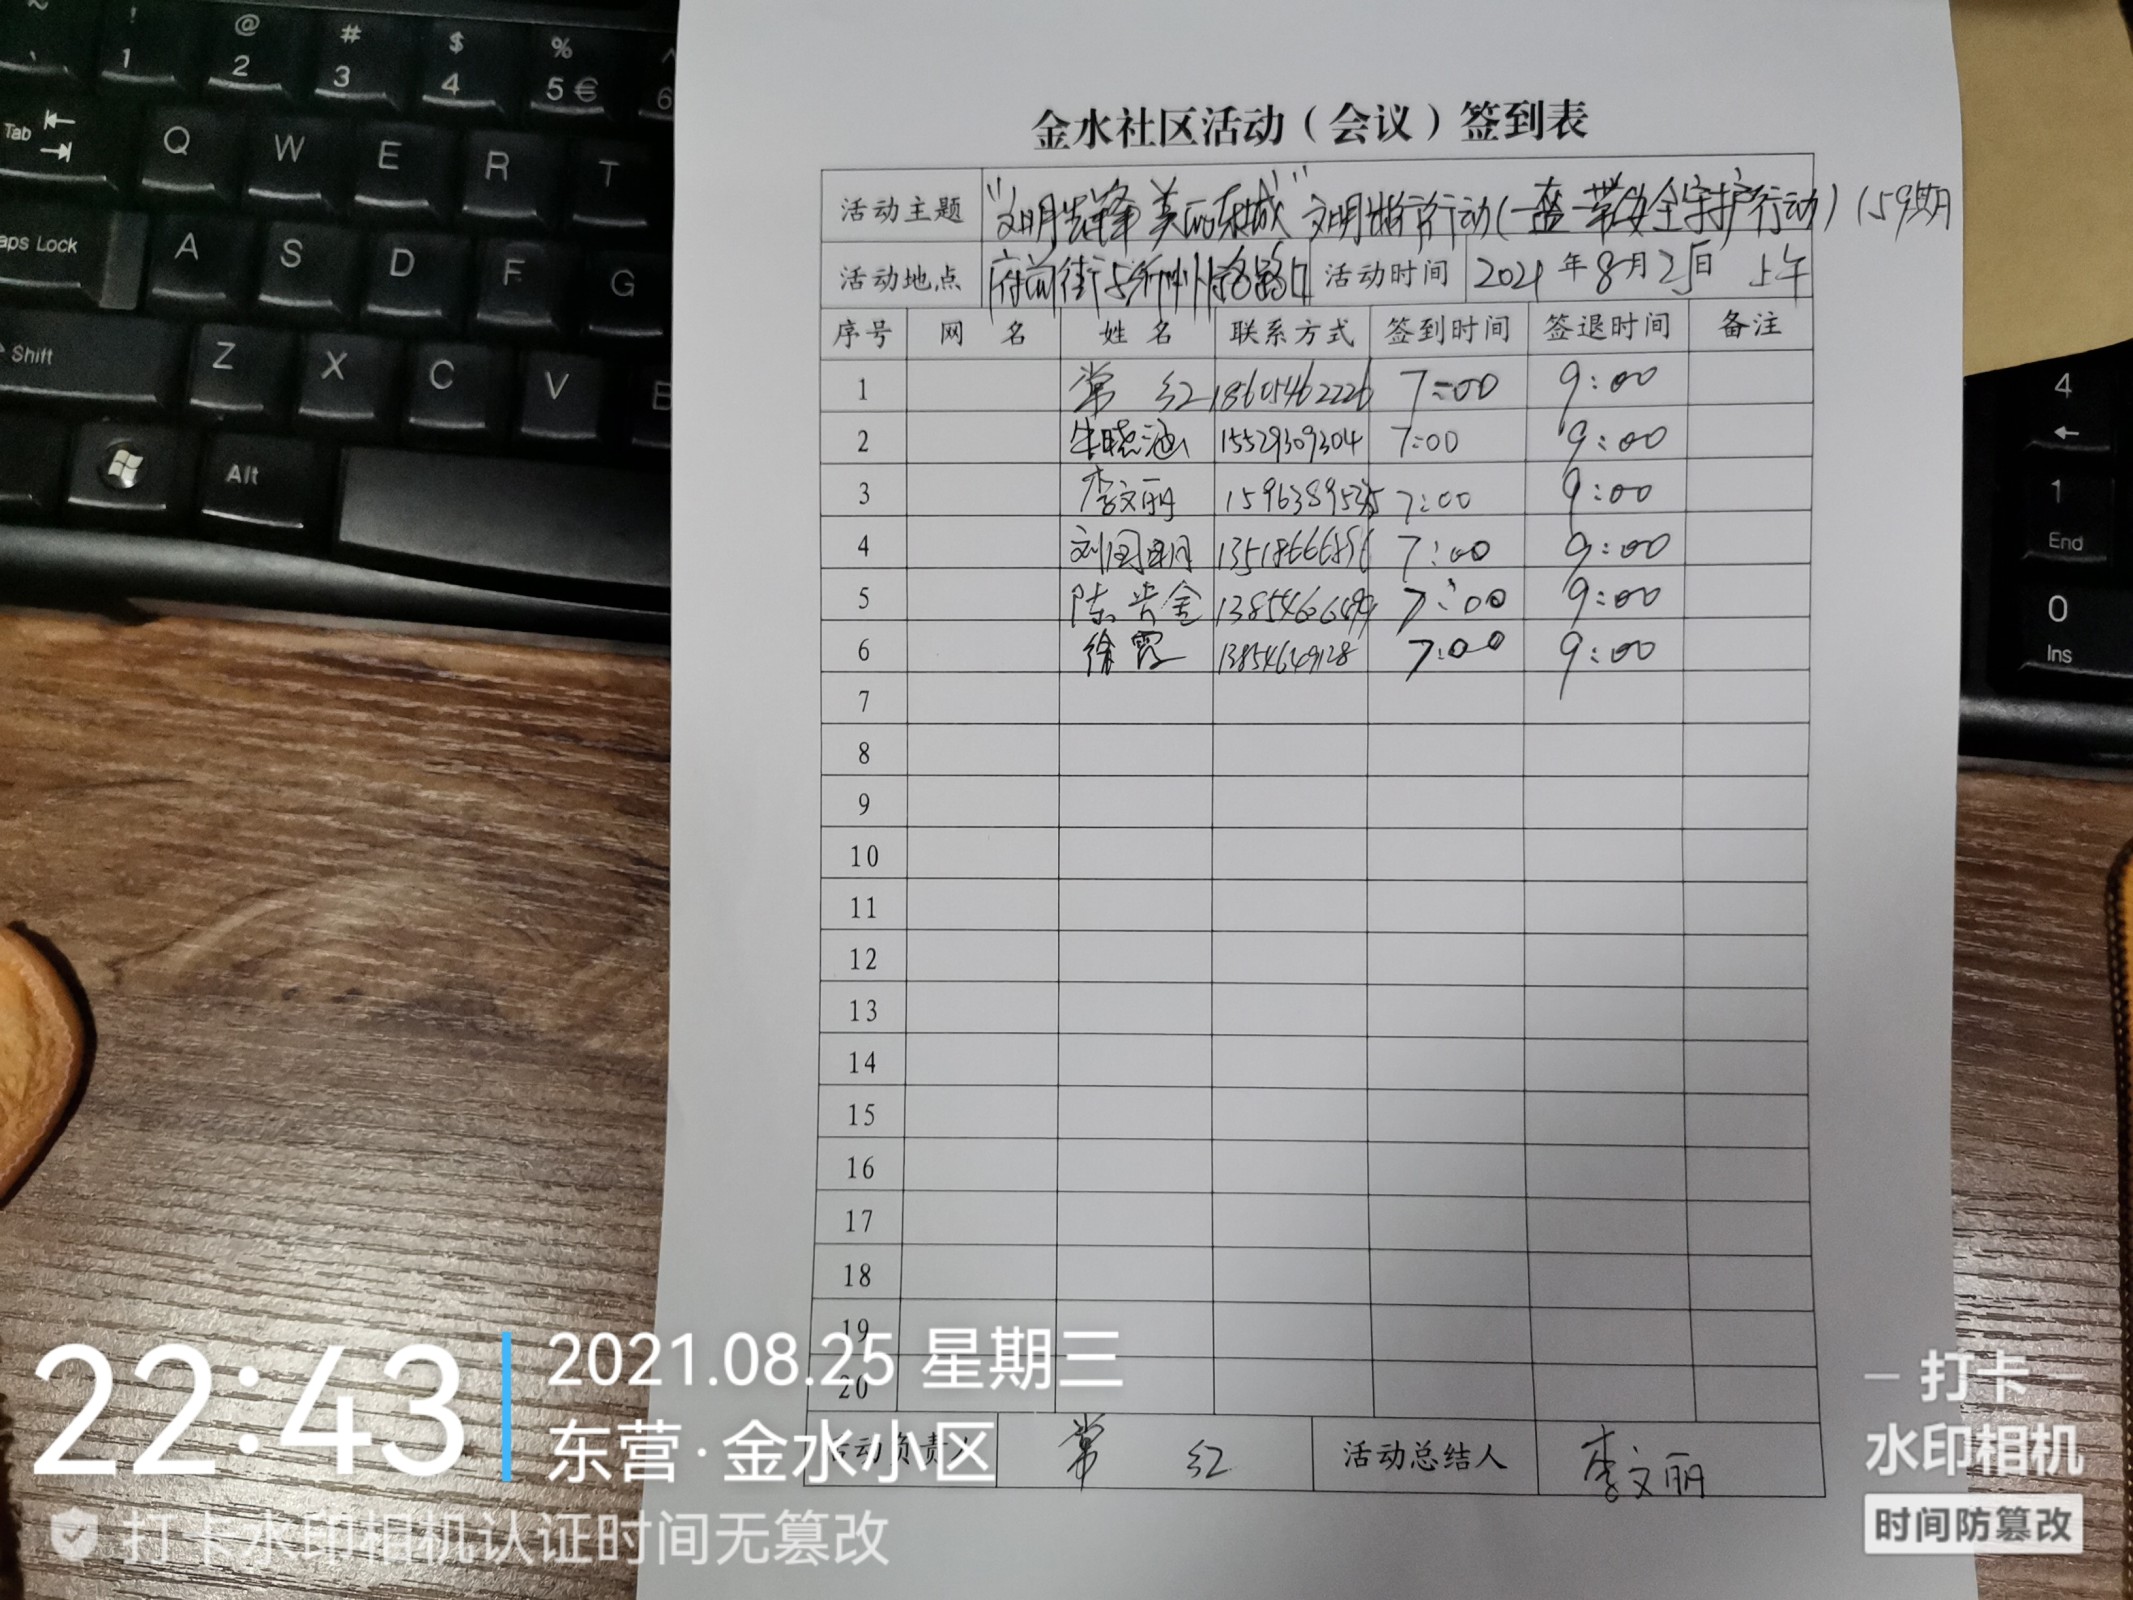 金水社区活动（会议）签到表
活动主题 "文明先锋 美丽东城" 文明出行行动(一盔一带安全守护行动) (59期
活动地点 府前街与 路口 活动时间 2021年8月25日 上午
序号 网 名 姓 名 联系方式 签到时间 签退时间 备注
1 常 红 18605462226 7:00 9:00
2 牛晓涵 15529309304 7:00 9:00
3 李文丽 7:00 9:00
4 刘国 7:00 9:00
5 陈 金 7:00 9:00
6 徐霞 13854649128 7:00 9:00
7
8
9
10
11
12
13
14
15
16
17
18
19
20
活动负责人 常 红 活动总结人 李文丽
22:43
2021.08.25 星期三
东营·金水小区
打卡水印相机认证时间无篡改
打卡
水印相机
时间防篡改
~ ! @ # $ % ^
` 1 2 3 4 5 € 6
Tab Q W E R T
aps Lock A S D F G
Shift Z X C V B
Alt
4
←
1
End
0
Ins